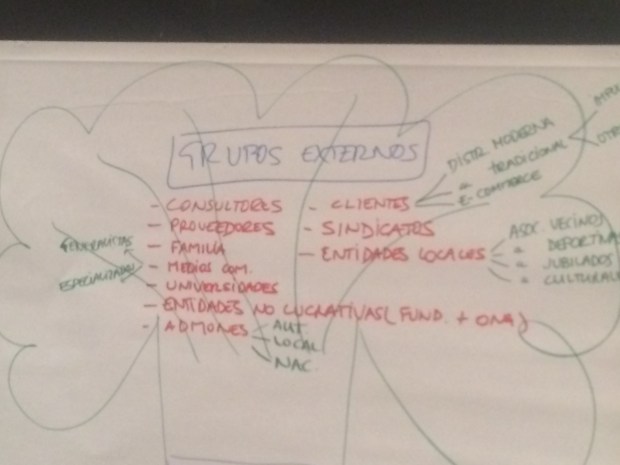 GRUPOS EXTERNOS
- CONSULTORES
- PROVEEDORES
- FAMILIA
- MEDIOS COM.
GENERALISTAS
ESPECIALIZADOS
- UNIVERSIDADES
- ENTIDADES NO LUCRATIVAS (FUND. + ONG)
- ADMONES
AUT.
LOCAL
NAC.
- CLIENTES
DISTR. MODERNA
" TRADICIONAL
E-COMMERCE
- SINDICATOS
- ENTIDADES LOCALES
ASOC. VECINOS
" DEPORTIVA
" JUBILADOS
" CULTURALE